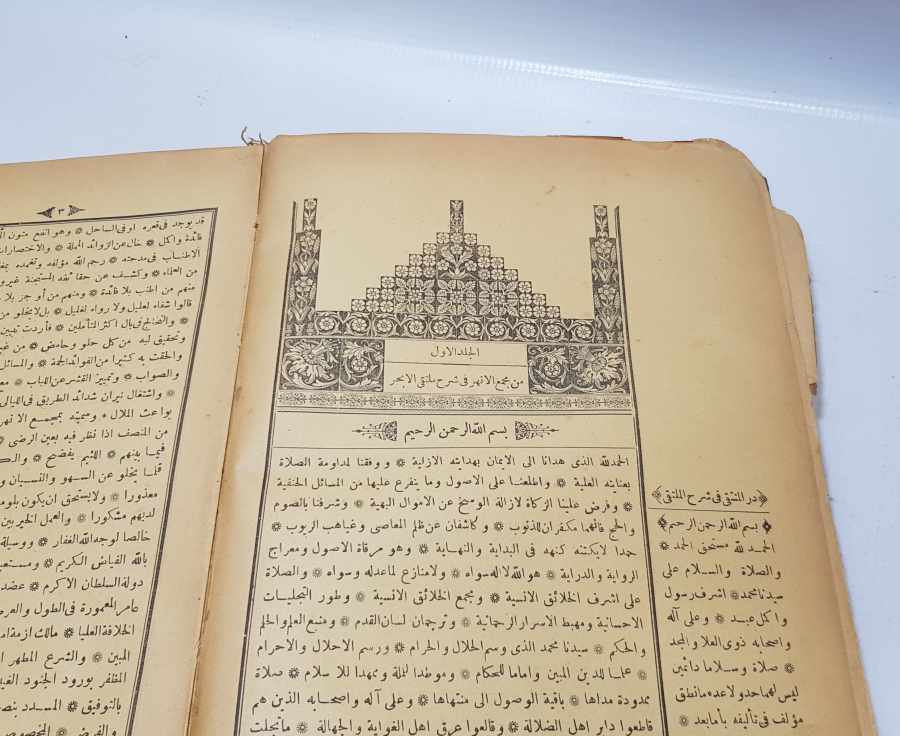 الجلد الاول
من مجمع الانهر فى شرح ملتقى الابحر
بسم الله الرحمن الرحيم
الحمد لله الذى هدانا الى الايمان بهدايته الازلية ۞ ووفقنا لمداومة الصلاة
بعنايته العلية ۞ واطلعنا على الاصول وما يتفرع عليها من المسائل الحنفية
۞ وفرض علينا الزكاة لازالة الوسخ عن الاموال البهية ۞ وشرفنا بالصوم
والحج فانهما مكفران للذنوب ۞ وكاشفان عن ظلم المعاصى وغياهب الريوب ۞
حمدا لا يكتنه كنهه فى البداية والنهاية ۞ وهو مرقاة الاصول ومعراج
الرواية والدراية ۞ هو الله لا اله سواه ۞ ولا منازع لما عدله وسواه ۞ والصلاة
على اشرف الخلائق الانسية ۞ ومجمع الحقائق الانسية ۞ وطور التجليات
الاحسانية ومهبط الاسرار الرحمانية ۞ وترجمان لسان القدم ۞ ومنبع العلم والحلم
والحكم ۞ سيدنا محمد الذى وسم الحلال والحرام ۞ ورسم الاحلال والاحرام
۞ عمادا للدين المبين واماما للحكام ۞ وموطدا للملة وممهدا للاسلام ۞ صلاة
ممدودة مداها ۞ باقية الوصول الى منتهاها ۞ وعلى آله واصحابه الذين هم
قاطعوا دابر اهل الضلالة ۞ وقالعوا عرق اهل الغواية والجهالة ۞ ما تجلت
در المنتقى فى شرح الملتقى
بسم الله الرحمن الرحيم
الحمد لله مستحق الحمد ۞
والصلاة والسلام على
سيدنا محمد ۞ اشرف رسول
واكل عبد ۞ وعلى آله
واصحابه ذوى العلا والمجد
۞ صلاة وسلاما دائمين
ليس لهما حد ولا عد ما نطق
مؤلف فى تأليفه بأما بعد ۞
٣
قد يوجد فى قعره او فى الساحل ۞ وهو انفع متون
فائدة واكل ۞ خال عن الزوائد المملة ۞ والاختصارات
الاطناب فى مدحته ۞ رحم الله مؤلفه وتغمده
من العلماء ۞ وكشف عن حقائقه
منهم من اطنب بلا فائدة ۞ ومنهم من أوجز بلا
قالوا شفاء لعليل ولا رواء لغليل ۞ بل لا يخلو من
فى بال اكثر المتأملين ۞ فأردت تبيين
وتحقيق لبه من كل حلو وحامض ۞ من غير
والحقت به كثيرا من الفوائد الجمة ۞ والمسائل
والصواب ۞ وتميز القشر عن اللباب ۞
۞ واشتغال نيران شدائد الطريق فى الليالى
بواعث الملال ۞ وسميته بمجمع الانهر
من المنصف اذا نظر فيه بعين الرضى ۞
فيما بينهم ۞ اللئيم يفضح ۞
قلما يخلو عن السهو والنسيان
معذورا ۞ ولا يستحق ان يكون
لديهم مشكورا ۞ والعمل الخير بين
خالصا لوجه الله الغفار ۞ ووسيلة
بالله الفياض الكريم ۞
دولة السلطان الاكرم ۞ عضد
عامر المعمورة فى الطول والعرض
الخلافة العليا ۞ مالك ازمة
المبين ۞ والشرع المطهر
المظفر بورود الجنود
بالتوفيق ۞ المسدد
والفرض ۞ المخصوص